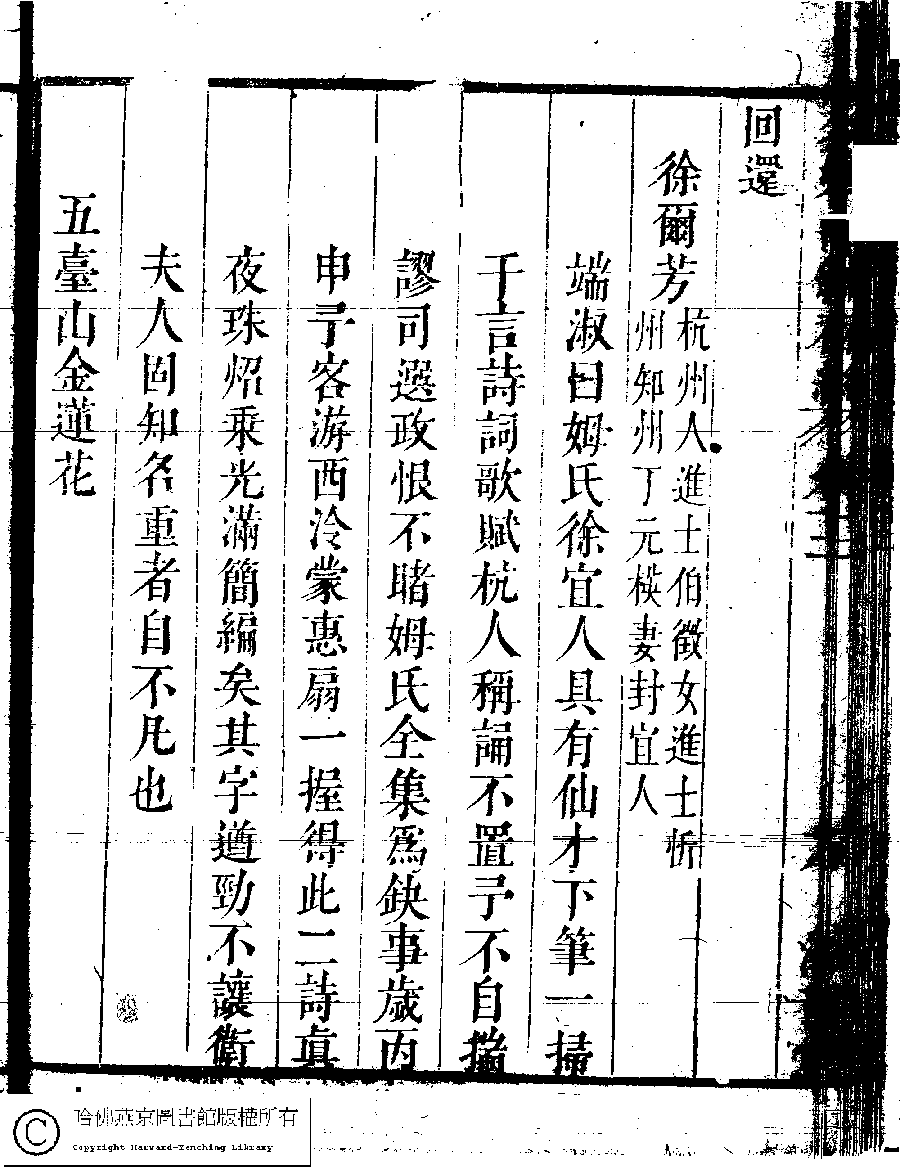 回還
徐爾芳
杭州人進士伯徵女進士忻
州知州丁元模妻封宜人
端淑曰姆氏徐宜人具有仙才下筆一掃
千言詩詞歌賦杭人稱誦不置予不自揣
謬司選政恨不睹姆氏全集爲缺事歲丙
申予客游西泠蒙惠扇一握得此二詩眞
夜珠炤乘光滿簡編矣其字遒勁不讓衛
夫人固知名重者自不凡也
五臺山金蓮花
哈佛燕京圖書館版權所有
Copyright Harvard-Yenching Library